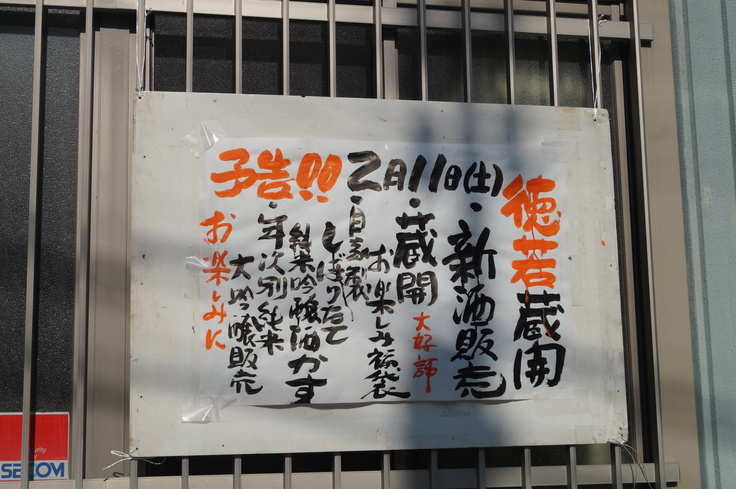 予告!! 2月11日(土)
徳若蔵開
・新酒販売
・蔵開
大好評
お楽しみ福袋
・自家製
しぼりたて
純米吟醸酒かす
・年次別純米
大吟醸販売
お楽しみに
SECOM